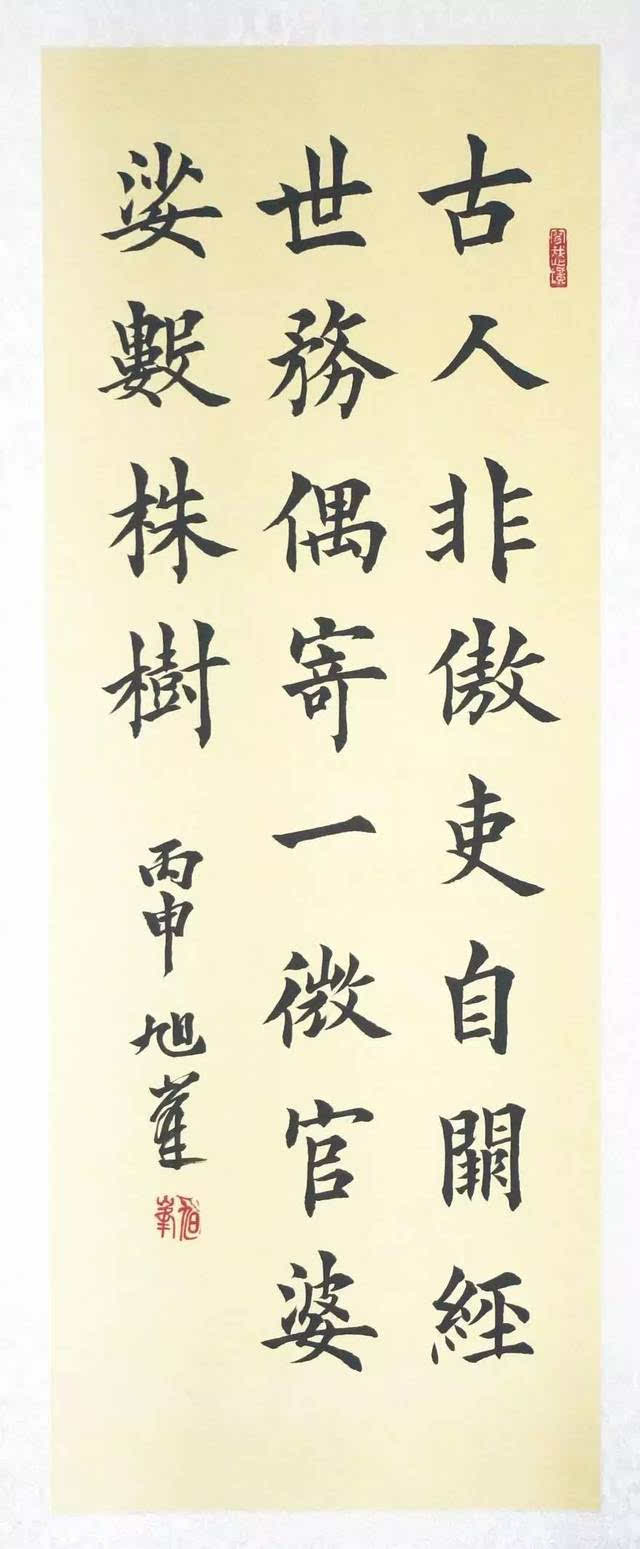 古人非傲吏自闗經
世務偶寄一微官婆
娑數株樹 丙申 旭